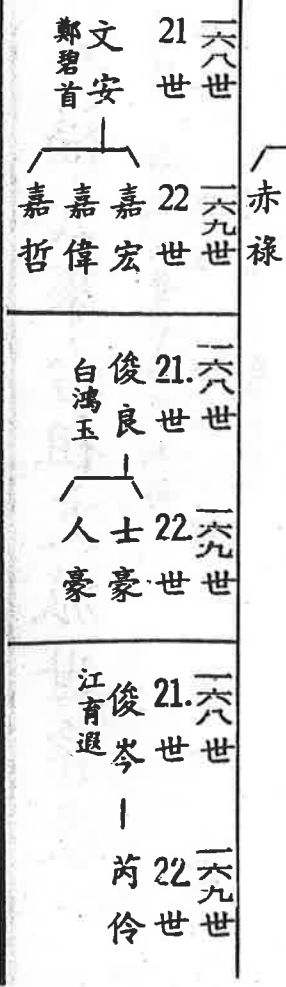 赤祿
一六八世
21世
文安
鄭碧首
一六九世
22世
嘉宏
嘉偉
嘉哲
一六八世
21.世
俊良
白鴻玉
一六九世
22.世
士豪
人豪
一六八世
21.世
俊岑
江育遐
一六九世
22世
芮伶